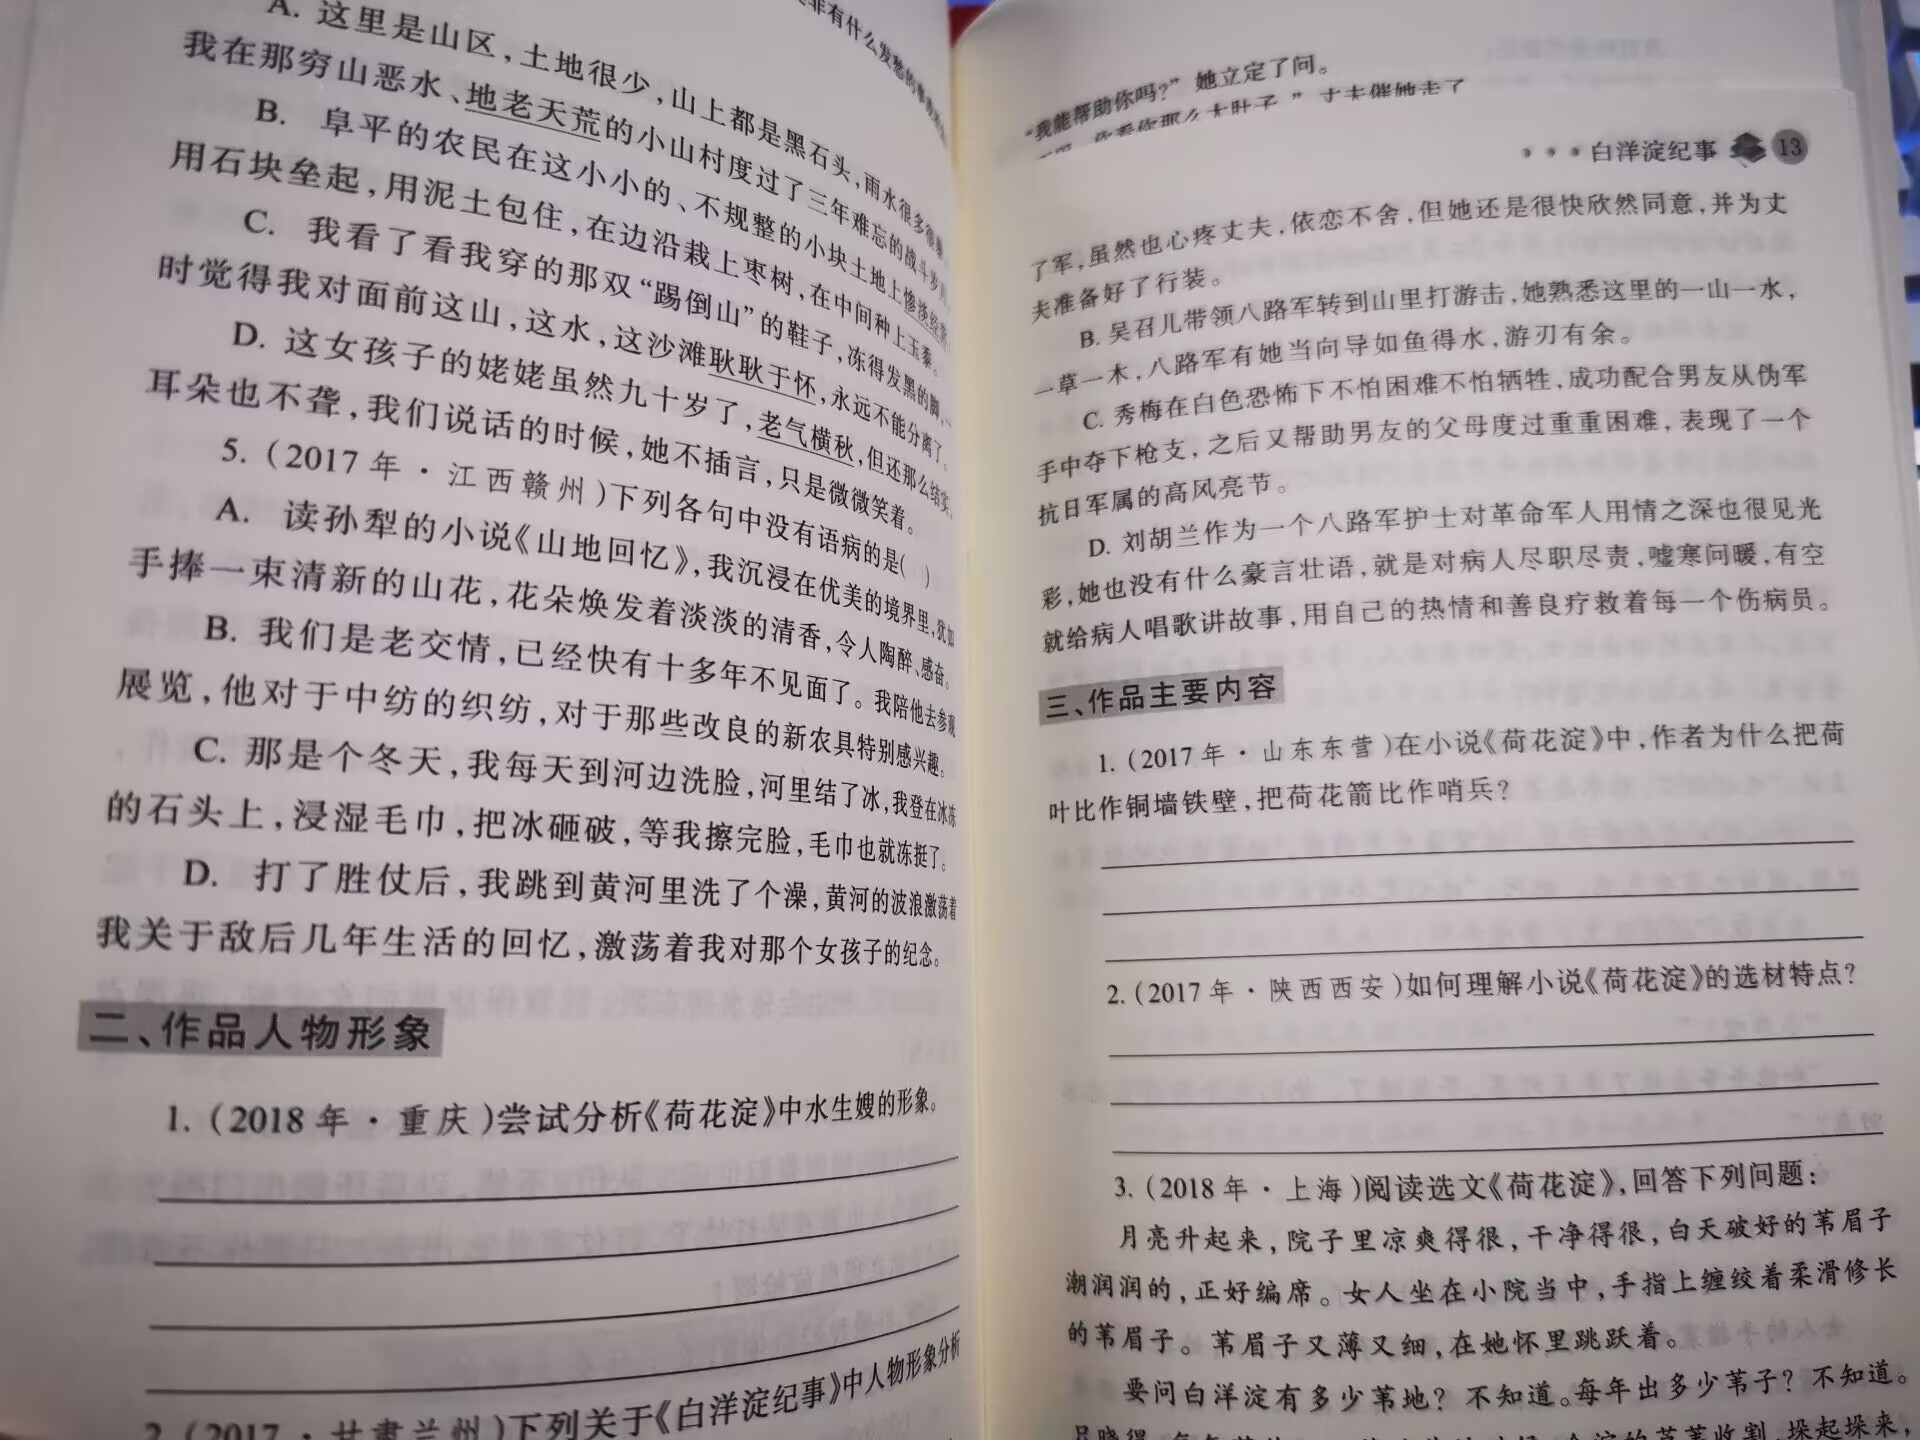 非有什么发愁的事
A. 这里是山区，土地很少，山上都是黑石头，雨水很多很暴
我在那穷山恶水、地老天荒的小山村度过了三年难忘的战斗岁月
B. 阜平的农民在这小小的、不规整的小块土地上惨淡经营
用石块垒起，用泥土包住，在边沿栽上枣树，在中间种上玉黍。
C. 我看了看我穿的那双“踢倒山”的鞋子，冻得发黑的脚，一
时觉得我对面前这山，这水，这沙滩耿耿于怀，永远不能分离了。
D. 这女孩子的姥姥虽然九十岁了，老气横秋，但还那么结实，
耳朵也不聋，我们说话的时候，她不插言，只是微微笑着。
5. (2017年·江西赣州)下列各句中没有语病的是( )
A. 读孙犁的小说《山地回忆》，我沉浸在优美的境界里，犹如
手捧一束清新的山花，花朵焕发着淡淡的清香，令人陶醉、感奋。
B. 我们是老交情，已经快有十多年不见面了。我陪他去参观
展览，他对于中纺的织纺，对于那些改良的新农具特别感兴趣。
C. 那是个冬天，我每天到河边洗脸，河里结了冰，我登在冰冻
的石头上，浸湿毛巾，把冰砸破，等我擦完脸，毛巾也就冻挺了。
D. 打了胜仗后，我跳到黄河里洗了个澡，黄河的波浪激荡着
我关于敌后几年生活的回忆，激荡着我对那个女孩子的纪念。
二、作品人物形象
1. (2018年·重庆)尝试分析《荷花淀》中水生嫂的形象。
2. (2017·甘肃兰州)下列关于《白洋淀纪事》中人物形象分析
“我能帮助你吗？”她立定了问。
你看你那么大肚子。”丈夫催她走了
白洋淀纪事 13
了军，虽然也心疼丈夫，依恋不舍，但她还是很快欣然同意，并为丈
夫准备好了行装。
B. 吴召儿带领八路军转到山里打游击，她熟悉这里的一山一水，
一草一木，八路军有她当向导如鱼得水，游刃有余。
C. 秀梅在白色恐怖下不怕困难不怕牺牲，成功配合男友从伪军
手中夺下枪支，之后又帮助男友的父母度过重重困难，表现了一个
抗日军属的高风亮节。
D. 刘胡兰作为一个八路军护士对革命军人用情之深也很见光
彩，她也没有什么豪言壮语，就是对病人尽职尽责，嘘寒问暖，有空
就给病人唱歌讲故事，用自己的热情和善良疗救着每一个伤病员。
三、作品主要内容
1. (2017年·山东东营)在小说《荷花淀》中，作者为什么把荷
叶比作铜墙铁壁，把荷花箭比作哨兵？
2. (2017年·陕西西安)如何理解小说《荷花淀》的选材特点？
3. (2018年·上海)阅读选文《荷花淀》，回答下列问题：
月亮升起来，院子里凉爽得很，干净得很，白天破好的苇眉子
潮润润的，正好编席。女人坐在小院当中，手指上缠绞着柔滑修长
的苇眉子。苇眉子又薄又细，在她怀里跳跃着。
要问白洋淀有多少苇地？不知道。每年出多少苇子？不知道。